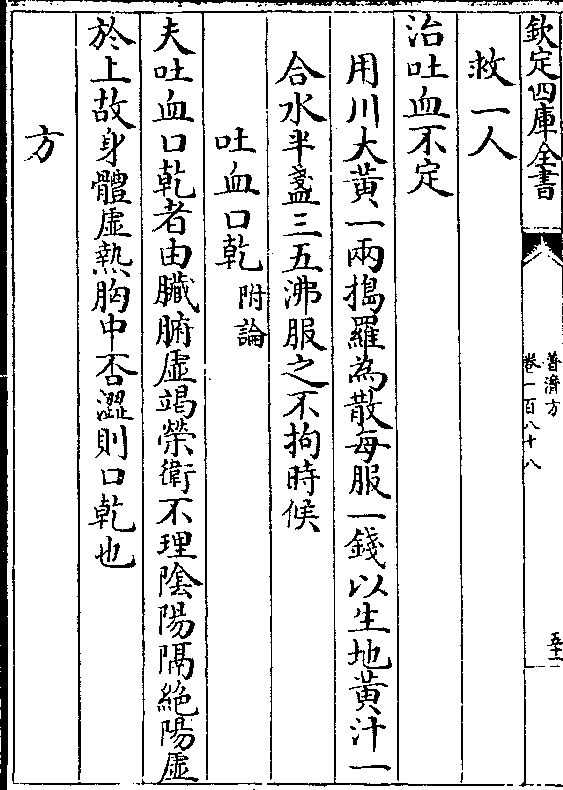 欽定四庫全書
普濟方
卷一百八十八
五十一
救一人
治吐血不定
用川大黃一兩搗羅為散每服一錢以生地黃汁一
合水半盞三五沸服之不拘時候
吐血口乾附論
夫吐血口乾者由臟腑虛竭榮衛不理陰陽隔絶陽虛
於上故身體虛熱胸中否澀則口乾也
方